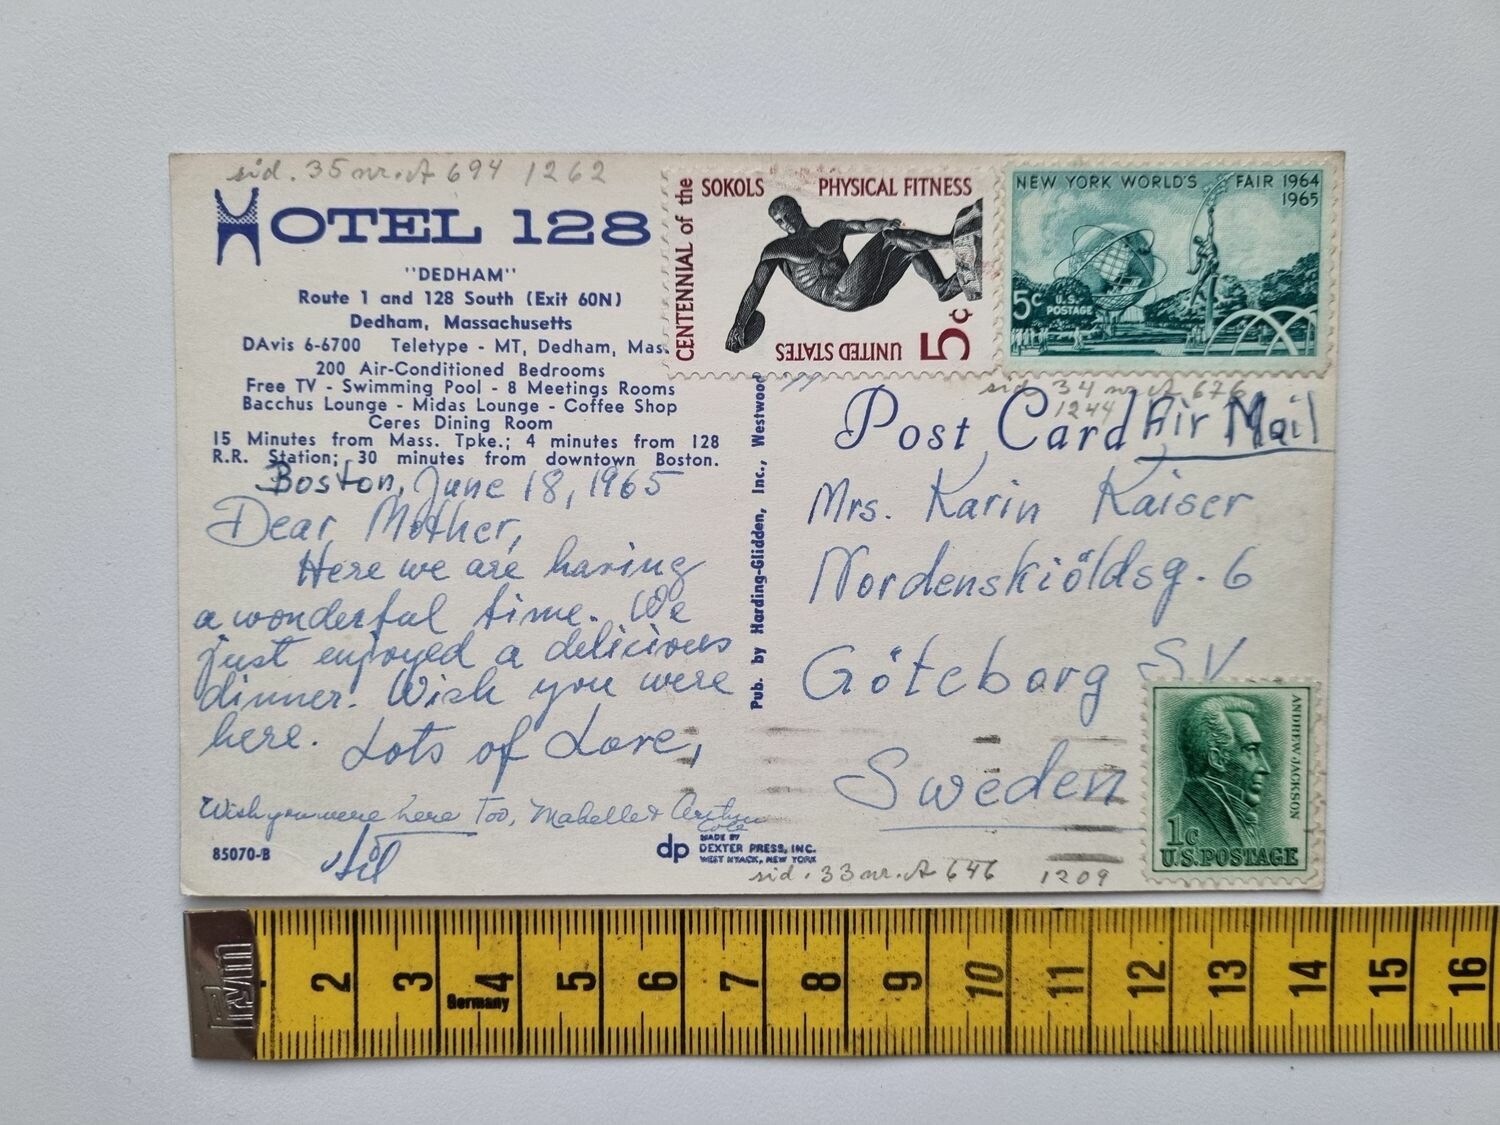 sid. 35 nr. A 694 1262
HOTEL 128
"DEDHAM"
Route 1 and 128 South (Exit 60N)
Dedham, Massachusetts
DAvis 6-6700 Teletype - MT, Dedham, Mas.
200 Air-Conditioned Bedrooms
Free TV - Swimming Pool - 8 Meetings Rooms
Bacchus Lounge - Midas Lounge - Coffee Shop
Ceres Dining Room
15 Minutes from Mass. Tpke.; 4 minutes from 128
R.R. Station; 30 minutes from downtown Boston.
Boston, June 18, 1965
Dear Mother,
Here we are having
a wonderful time. We
just enjoyed a delicious
dinner. Wish you were
here. Lots of Love,
Wish you were here Too, Mabelle & Arthur
Cole
85070-B
dp
MADE BY
DEXTER PRESS, INC.
WEST NYACK, NEW YORK
Pub. by Harding-Glidden, Inc., Westwood
CENTENNIAL of the
SOKOLS PHYSICAL FITNESS
UNITED STATES
5c
NEW YORK WORLD'S FAIR 1964
1965
5c U.S.
POSTAGE
sid. 34 nr. A 676
1244
Post Card
Air Mail
Mrs. Karin Kaiser
Nordenskiöldsg. 6
Göteborg SV
Sweden
ANDREW JACKSON
1c
U.S.POSTAGE
sid. 33 nr. A 646 1209
Prym
2 3 4 5 6 7 8 9 10 11 12 13 14 15 16
Germany